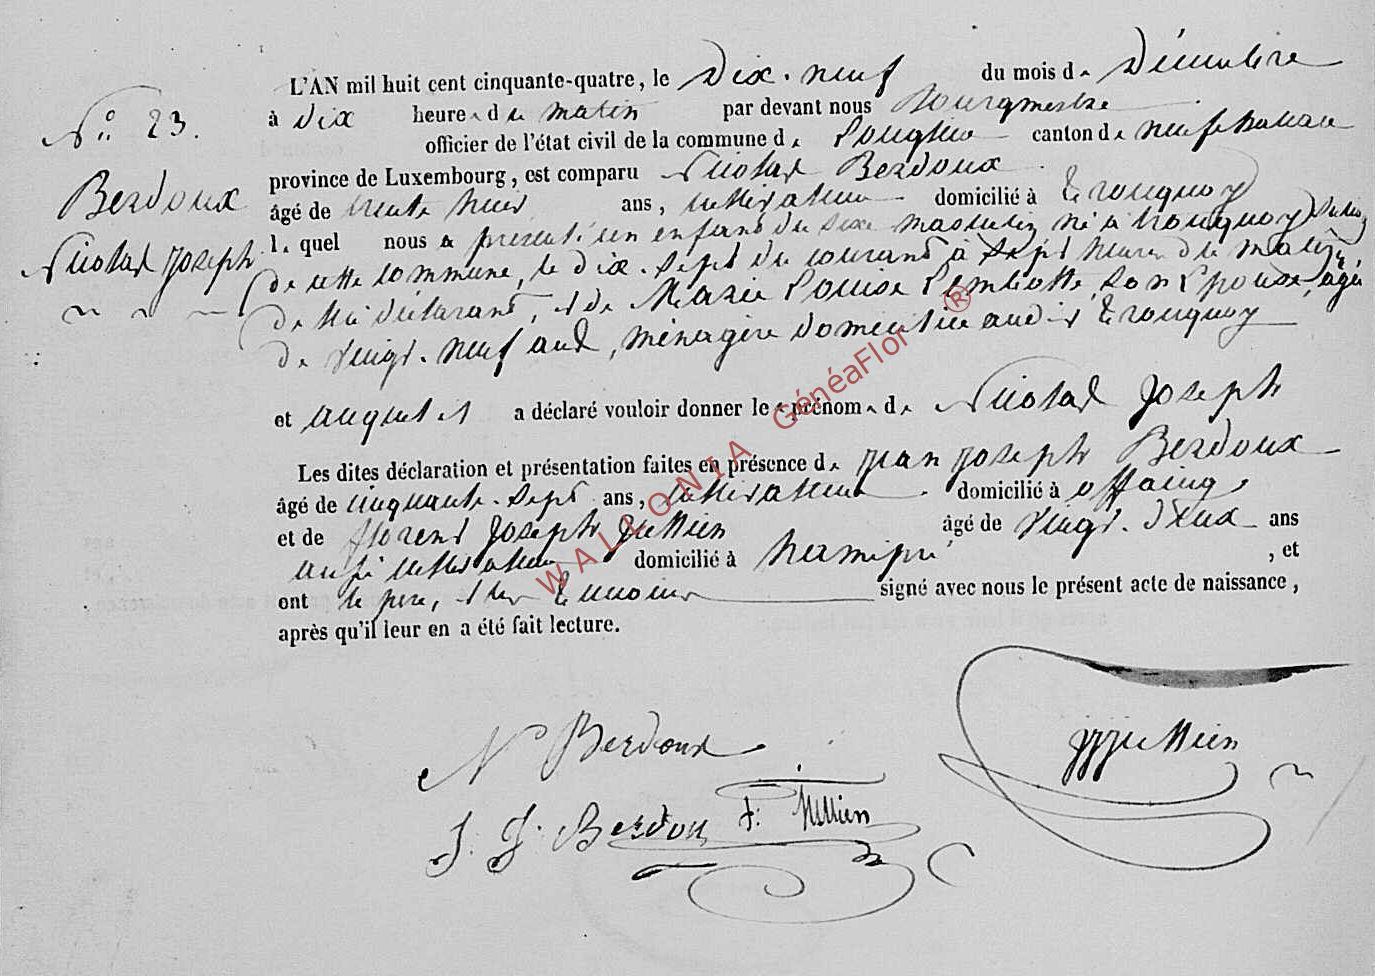 N° 23.
Berdoux
Nicolas Joseph
L'AN mil huit cent cinquante-quatre, le Dix-neuf du mois de Décembre
à Dix heures du matin par devant nous Bourgmestre
officier de l'état civil de la commune de Longlier canton de neufchateau
province de Luxembourg, est comparu Nicolas Berdoux
âgé de trente ans, cultivateur domicilié à Tronquoy
lequel nous a présenté un enfant du sexe masculin né à tronquoy
de cette commune, le dix-sept du courant à sept heures du matin,
de lui déclarant, et de Marie Louise son Epouse, agée
de vingt-neuf ans, ménagère domiciliée audit Tronquoy
et auquel il a déclaré vouloir donner les prénoms de Nicolas Joseph
Les dites déclaration et présentation faites en présence de jean joseph Berdoux
âgé de cinquante-sept ans, cultivateur domicilié à offaing
et de florent Joseph Jullien âgé de vingt-deux ans
aussi cultivateur domicilié à hamipré , et
ont le père, et les témoins signé avec nous le présent acte de naissance,
après qu'il leur en a été fait lecture.
N Berdoux
J. J. Berdoux F. Jullien
jjjullien
WALLONIA GénéaFlor ®